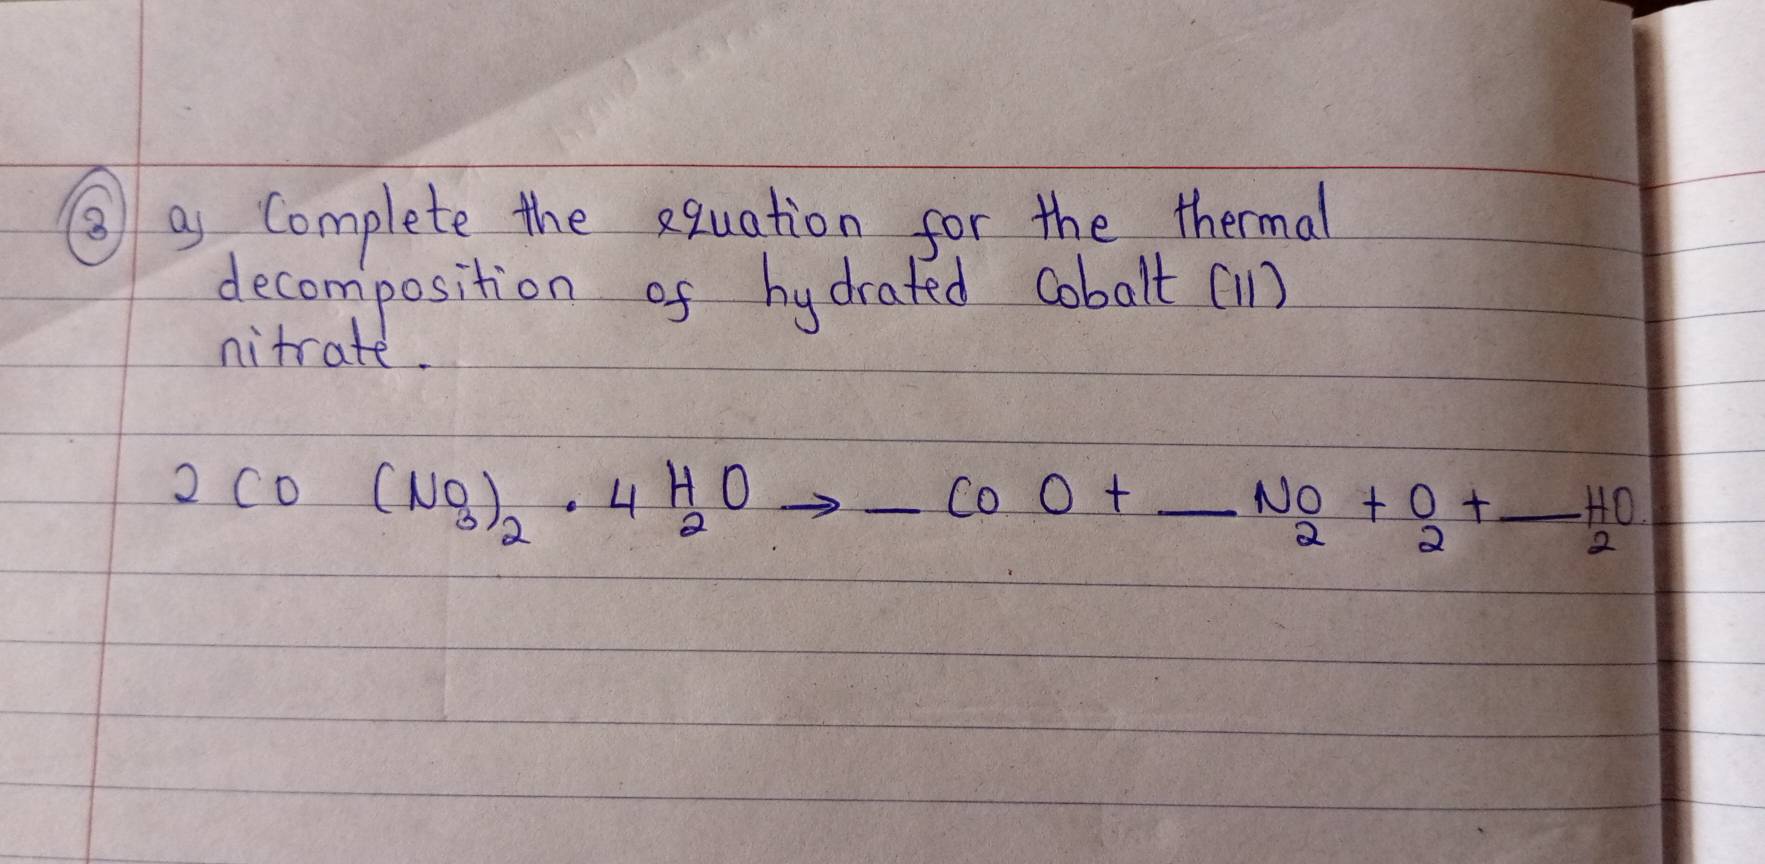 3 a) Complete the equation for the thermal
decomposition of hydrated Cobalt (II)
nitrate.
2 CO (NO₃)₂ . 4 H₂O → __ CO O + __ NO₂ + O₂ + __ H₂O.